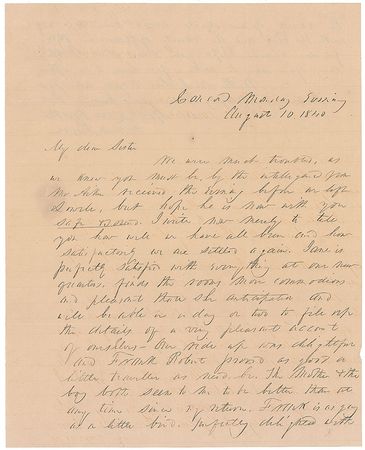 Concord Monday Evening
August 10 1840
My dear Sister
We were much troubled, as
we know you must be, by the intelligence from
Mr. received the evening before we left
Lowell, but hope he is now with you
safe & sound. I write now merely to tell
you how well we have all been and how
satisfactorily we are settled again. Jane is
perfectly satisfied with every thing at our new
quarters. finds the rooms more commodious
and pleasant than she anticipated and
will be able in a day or two to fill up
the details of a very pleasant account
of ourselves. Our ride up was delightful
and Frank Robert proved as good a
little traveller as need be. The Mother & the
boy both seem to me to be better than at
any time since my return. Frank is as gay
as a little bird. Perfectly delighted with